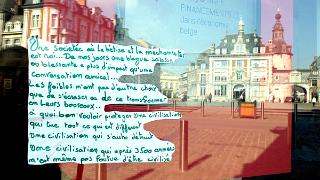 FINANCEMENT
dans l'économie
belge
Une Société où la bêtise et la méchanceté
est roi... De nos jours une blague salasse
ou blessante a plus d'impact qu'une
conversation amical...
Les faibles n'ont pas d'autre choix
que de s'écraser ou de ce transformer
en Leurs bourreaux
à quoi bon vouloir protéger Une civilisation
qui tue tout ce qui est différent
Une civilisation qui s'auto détruit
Une civilisation qui après 3500 années
n'est même pas foutue d'être civilisé